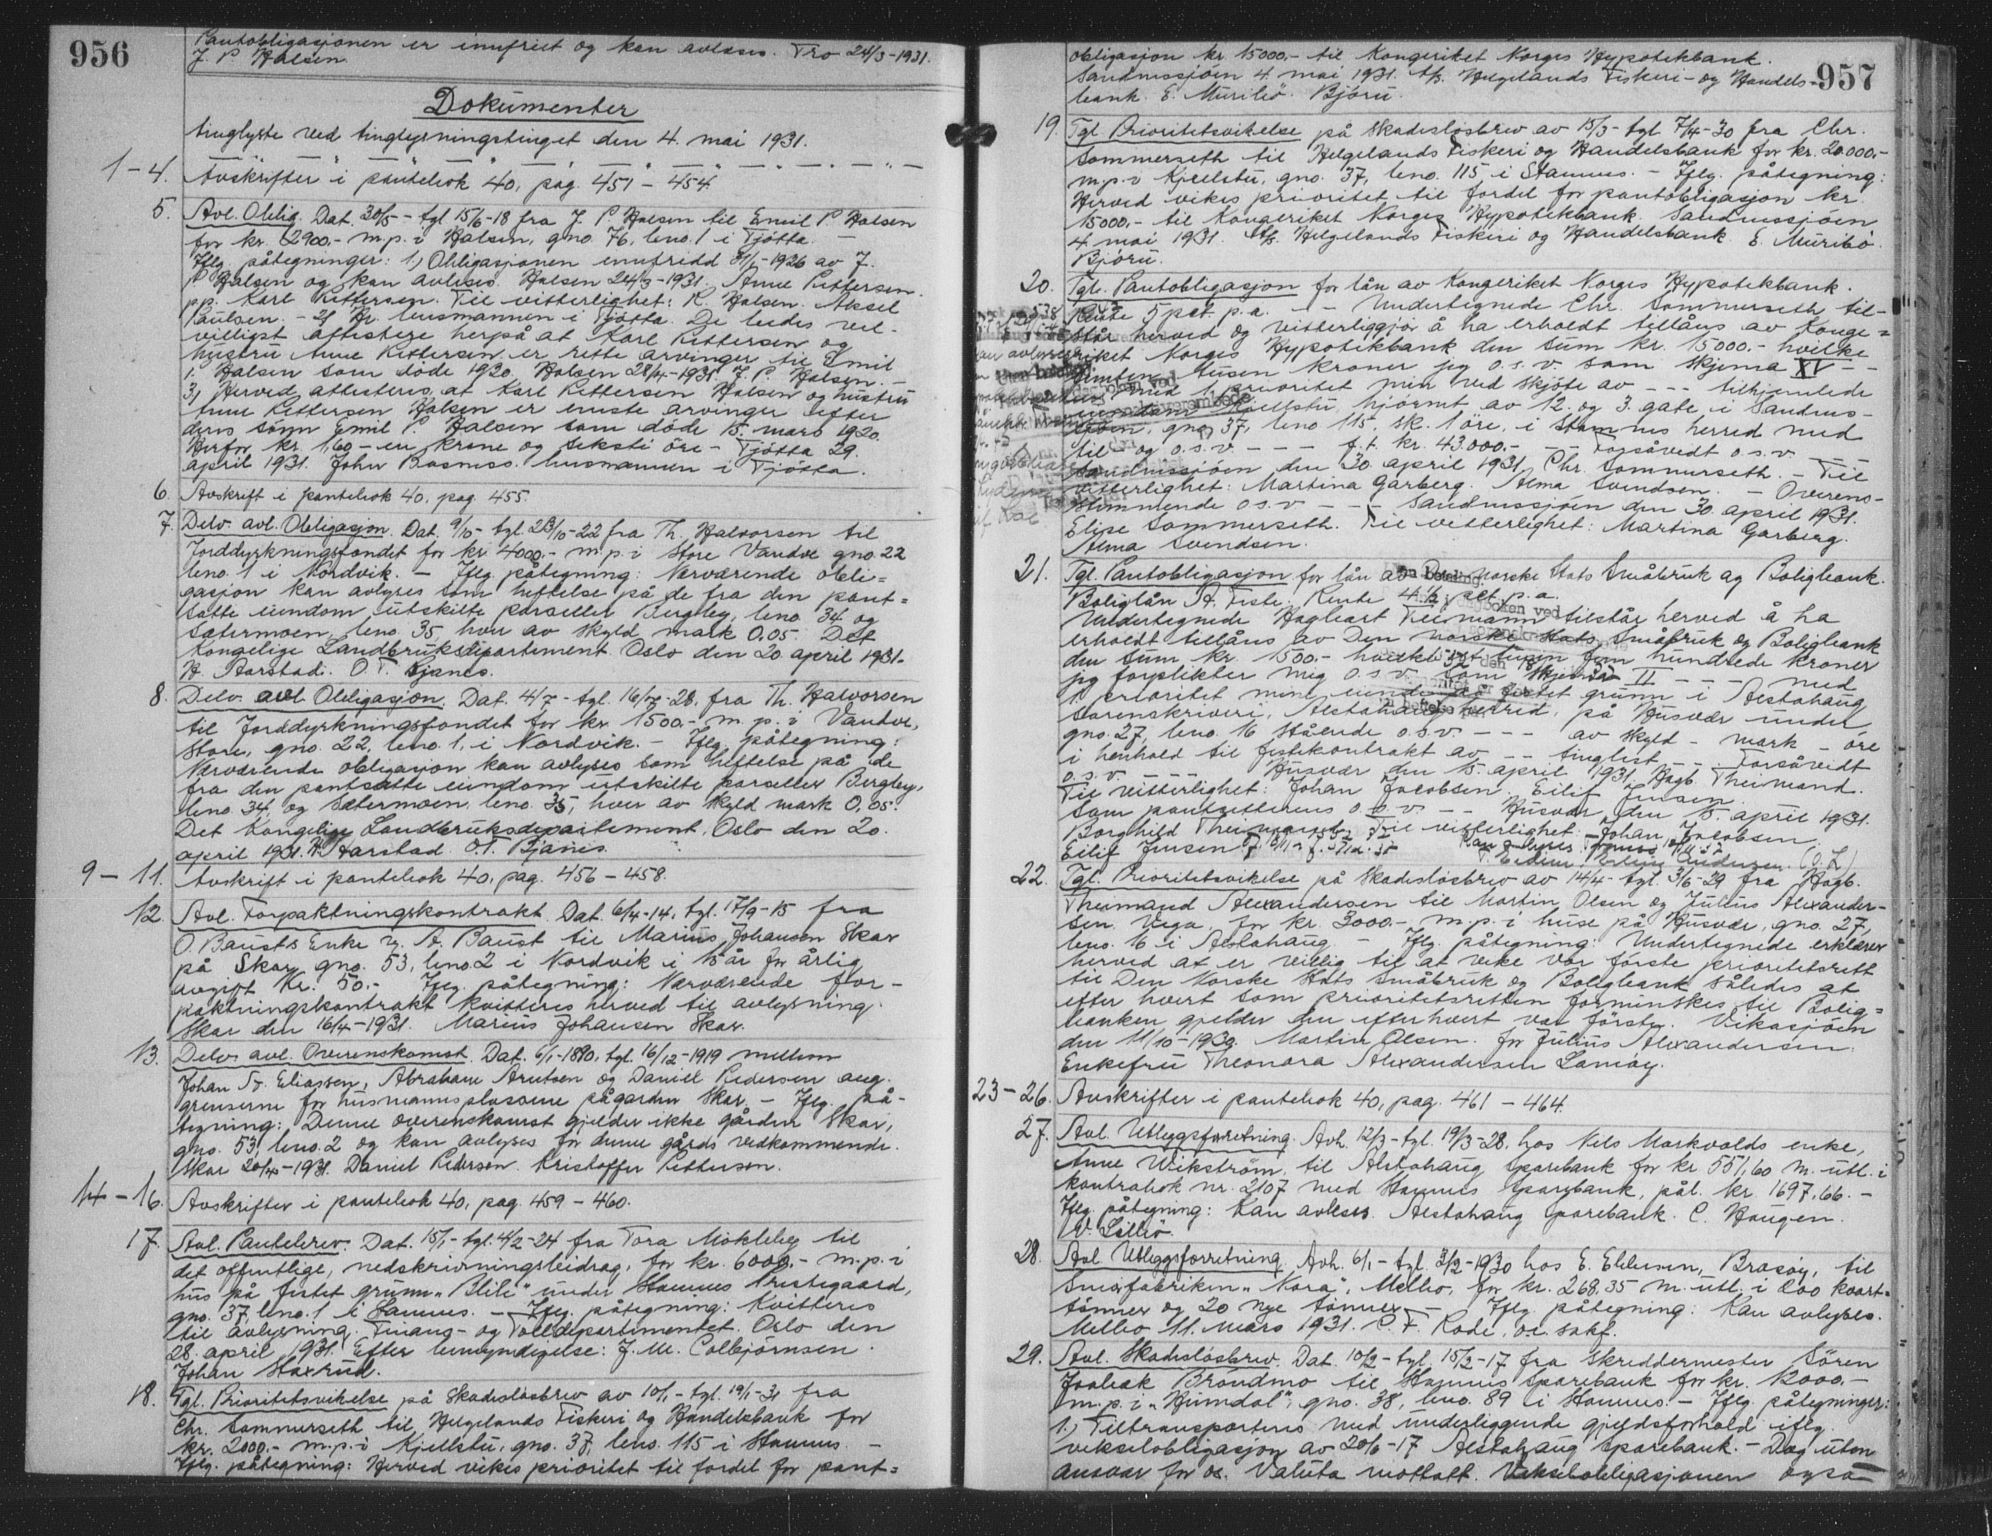 956
Pantobligasjonen er innfriet og kan avleses. Tro 24/3-1931.
J. P. Halsen
Dokumenter
tinglyste ved tinglysningstinget den 4. mai 1931.
1-4. Avskrifter i pantebok 40, pag. 451 - 454
5. Avl. Oblig. Dat. 30/5 - tgl 15/6-18 fra J. P. Halsen til Emil P. Halsen
for kr. 2900,- m.p. i Halsen, gno. 76, bno. 1 i Tjøtta. -
Iflg. påtegninger: 1) Obligasjonen innfridd 31/1-1926 av J.
P. Halsen og kan avlises. Halsen 24/3-1931. Anne Pettersen.
p.p. Karl Pettersen. Til vitterlighet: K. Halsen. Aksel
Paulsen. - 2) Hr. lensmannen i Tjøtta. De bedes vel-
villigst attestere herpå at Karl Pettersen og
hustru Anne Pettersen er rette arvinger til Emil
P. Halsen som døde 1920. Halsen 28/4-1931. J. P. Halsen. -
3) Herved attesteres at Karl Pettersen Halsen og hustru
Anne Pettersen Halsen er eneste arvinger efter
deres sønn Emil P. Halsen som døde 15. mars 1920.
Herfor kr. 1,60 - en krone og seksti øre - Tjøtta 29.
april 1931. John Bosness. lensmannen i Tjøtta.
6. Avskrift i pantebok 40, pag. 455.
7. Delv. avl. Obligasjon. Dat. 9/10 - tgl. 23/10-22 fra Th. Halvorsen til
Jorddyrkningsfondet for kr. 4000.- m.p. i Store Vandve gno. 22
bno. 1 i Nordvik. - Iflg. påtegning: Nærværende obli=
gasjon kan avlyses som heftelse på de fra den pant=
satte eiendom utskilte parseller Bergly, bno. 34 og
Sætermoen, bno. 35, hver av skyld mark 0,05. Det
kongelige Landbruksdepartement. Oslo den 20. april 1931.
H. Aarstad. O. T. Bjanes.
8. Delv. avl. Obligasjon. Dat. 4/7 - tgl. 16/7-28, fra Th. Halvorsen
til Jorddyrkningsfondet for kr. 1500.- m.p. i Vandve,
Store, gno. 22, bno. 1, i Nordvik. - Iflg. påtegning:
Nærværende obligasjon kan avlyses som heftelse på de
fra den pantsatte eiendom utskilte parseller Bergley,
bno. 34, og Sætermoen bno. 35, hver av skyld mark 0,05.
Det kongelige Landbruksdepartement, Oslo den 20.
april 1931. H. Aarstad. O.T. Bjanes.
9 - 11. Avskrift i pantebok 40, pag. 456 - 458.
12. Avl. Forpaktningskontrakt. Dat. 6/4-14, tgl. 17/9-15 fra
O. Bausts Enke v. A. Baust til Marius Johansen Skar
på Skar, gno. 53, bno. 2 i Nordvik i 15 år for årlig
avgift kr. 50.- Iflg. påtegning: Nærværende for-
paktningskontrakt kvitteres herved til avlysning.
Skar den 16/4-1931. Marius Johansen Skar.
13. Delv. avl. Overenskomst. Dat. 6/1-1890, tgl. 16/12-1919 mellem
Johan Eliassen, Abraham Arntsen og Daniel Pedersen ang.
grenserne for husmannsplassene på gården Skar. - Iflg. på-
tegning: Denne overenskomst gjelder ikke gården Skar,
gno. 53, bno. 2 og kan avlyses for denne gårds vedkommende.
Skar 20/4-1931. Daniel Pedersen. Kristoffer Pettersen.
14 - 16. Avskrifter i pantebok 40, pag. 459 - 460.
17. Avl. Pantebrev. Dat. 15/1 - tgl. 4/2-24 fra Tora Møklebg til
det offentlige, nedskrivningsbeidrag, for kr. 6000,- m.p. i
hus på festet grunn "Blili" under Stamnes Prestegaard,
gno. 37, bno. 1 i Stamnes. - Iflg. påtegning: Kvitteres
til avlysning. Finans- og Tolldepartementet. Oslo den
28. april 1931. Efter bemyndigelse: J. M. Colbjørnsen.
Johan Staxrud.
18. Tgl. Prioritetsvikelse på Skadesløsbrev av 10/1 - tgl. 19/1-31 fra
Chr. Sommerseth til Helgelands Fiskeri og Handelsbank for
kr. 2000.- m.p. i Kjellstu, gno. 37, bno. 115 i Stamnes. -
Iflg. påtegning: Herved vikes prioritet til fordel for pant=
957
obligasjon kr. 15000.- til Kongeriket Norges Hypotekbank.
Sandnessjøen 4. mai 1931. t/b. Helgelands Fiskeri- og Handels-
bank. E. Muribø. Bjøru.
19. Tgl. Prioritetsvikelse på Skadesløsbrev av 15/3 - tgl. 7/4-30 fra Chr.
Sommerseth til Helgelands Fiskeri og Handelsbank for kr. 20.000.-
m.p. i Kjellstu, gno. 37, bno. 115 i Stamnes. - Iflg. påtegning:
Herved vikes prioritet til fordel for pantobligasjon kr.
15000.- til Kongeriket Norges Hypotekbank. Sandnessjøen
4. mai 1931. t/b. Helgelands Fiskeri og Handelsbank. E. Muribø.
Bjøru.
20. Tgl. Pantobligasjon for lån av Kongeriket Norges Hypotekbank.
Rente 5 pct. p.a. - - Undertegnede Chr. Sommerseth til-
står herved og vitterliggjør å ha erholdt tillåns av Konge=
riket Norges Hypotekbank den sum kr. 15000.- hvilke
femten tusen kroner jeg o.s.v. som skjema XV - -
med 1. prioritet min ved skjøte av - - - tilhjemlede
eiendom Kjellstu, hjørnet av 12. og 3. gate, i Sandnes-
sjøen, gno. 37, bno 115, sk. 1 øre, i Stamnes herred med
til og o.s.v. - - - f.t. kr. 43.000.- - Forsåvedt o.s.v. - -
Sandnessjøen den 30. april 1931. Chr. Sommerseth. - Til
vitterlighet: Martina Garberg. Alma Svendsen. - Overens-
stemmende o.s.v. - - - Sandnessjøen den 30. april 1931.
Elise Sommerseth. Til vitterlighet: Martina Garberg.
Alma Svendsen.
21. Tgl. Pantobligasjon for lån av Den norske Stats Småbruk og Boligbank.
Boliglån A. Feste. Rente 4 1/2 pct. p.a.
Undertegnede Hagbart Teimann tilstår herved å ha
erholdt tillåns av Den norske Stats Småbruk og Boligbank
den sum kr. 1500.- hvilke et tusen fem hundrede kroner
jeg forplikter mig o.s.v. som skjema II - - - med
1. prioritet mine på festet grunn i Alstahaug
sorenskriveri, Alstahaug herred, på Husvær under
gno. 27, bno. 16 stående o.s.v. - - - av skyld - mark - øre
i henhold til festekontrakt av - - tinglest - - . Forsåvidt
o.s.v. - - - Husvær den 15. april 1931. Hagb. Theimand.
Til vitterlighet: Johan Jacobsen. Eilif Jensen.
Som pantsetterens o.s.v. - - Husvær den 15. april 1931.
Borghild Til vitterlighet: Johan Jacobsen
Eilif Jensen
22. Tgl. Prioritetsvikelse på Skadesløsbrev av 14/4 - tgl. 3/6-29 fra Hagb.
Theimand Alexandersen til Martin Olsen og Julius Alexander-
sen Vega, for kr. 3000.- m.p. i huse på Husvær, gno. 27,
bno. 16 i Alstahaug. - Iflg. påtegning: Undertegnede erklærer
herved at er villig til at vike vor første prioritetsrett
til Den Norske Stats Småbruk og Boligbank således at
efter hvert som prioritetsretten forminskes til Bolig=
banken gjelder den efterhvert vor første. Vikasjøen
den 11/10-1930. Martin Olsen. for Julius Alexandersen:
Enkefru Theonora Alexandersen Lamøy.
23 - 26. Avskrifter i pantebok 40, pag. 461 - 464.
27. Avl. Utleggsforretning. Avh. 12/3 - tgl. 19/3-28, hos Nils Markvolds enke,
Anne Wikstrøm, til Alstahaug Sparebank for kr. 551,60 m. utl. i
kontrabok nr. 2107 med Stamnes Sparebank, pål. kr. 1697,66. -
Iflg. påtegning: Kan avleses. Alstahaug Sparebank. C. Haugen.
W. Lillebø.
28. Avl. Utleggsforretning. Avh. 6/1 - tgl. 3/2-1930 hos E. Ebbesen, Brasøy, til
Smørfabriken "Nora", Melbo, for kr. 268,35 m. utl. i 200 kvart-
tønner og 20 nye tønner. - Iflg. påtegning: Kan avlyses.
Melbo 11. mars 1931. C. F. Rode, o.r. sakf.
29. Avl. Skadesløsbrev. Dat. 10/2 - tgl. 15/2-17 fra skreddermester Søren
Joakak Brøndmo til Stamnes Sparebank for kr. 12000.-
m.p. i "Heimdal", gno. 38, bno. 89 i Stamnes. - Iflg. påtegninger:
1.) Tiltransporteres med underliggende gjeldsforhold iflg.
vekselobligasjon av 20/6-17 Alstahaug Sparebank. - Dog uten
ansvar for os. Valuta mottatt. Vekselobligasjonen også